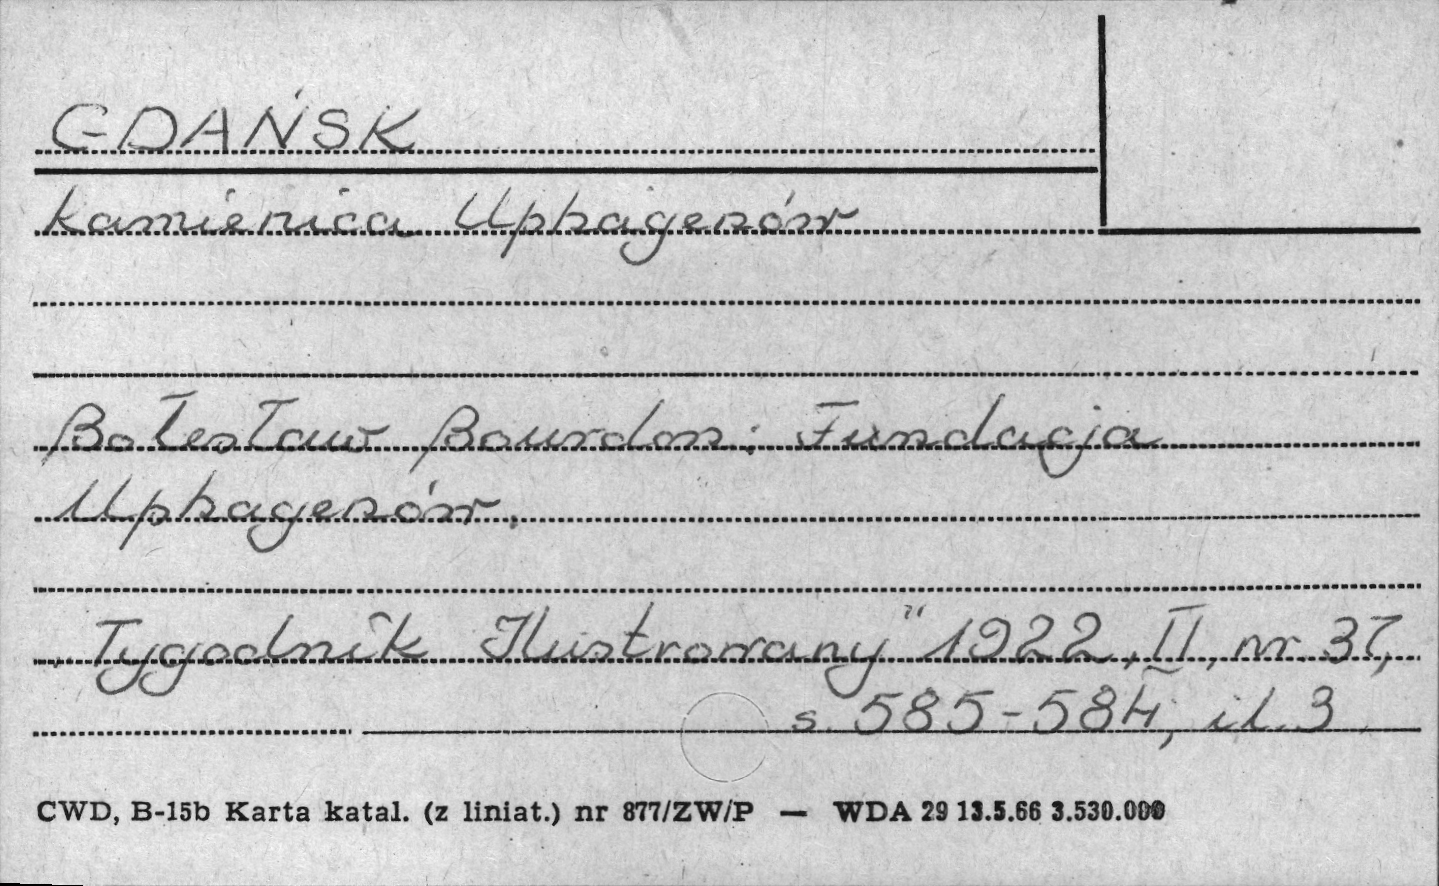 GDAŃSK
Kamienica Uphagenów
Bolesław Bourdon: Fundacja
Uphagenów.
"Tygodnik Ilustrowany" 1922, II, nr. 37,
s. 585-584, il. 3
CWD, B-15b Karta katal. (z liniat.) nr 877/ZW/P — WDA 29 13.5.66 3.530.000